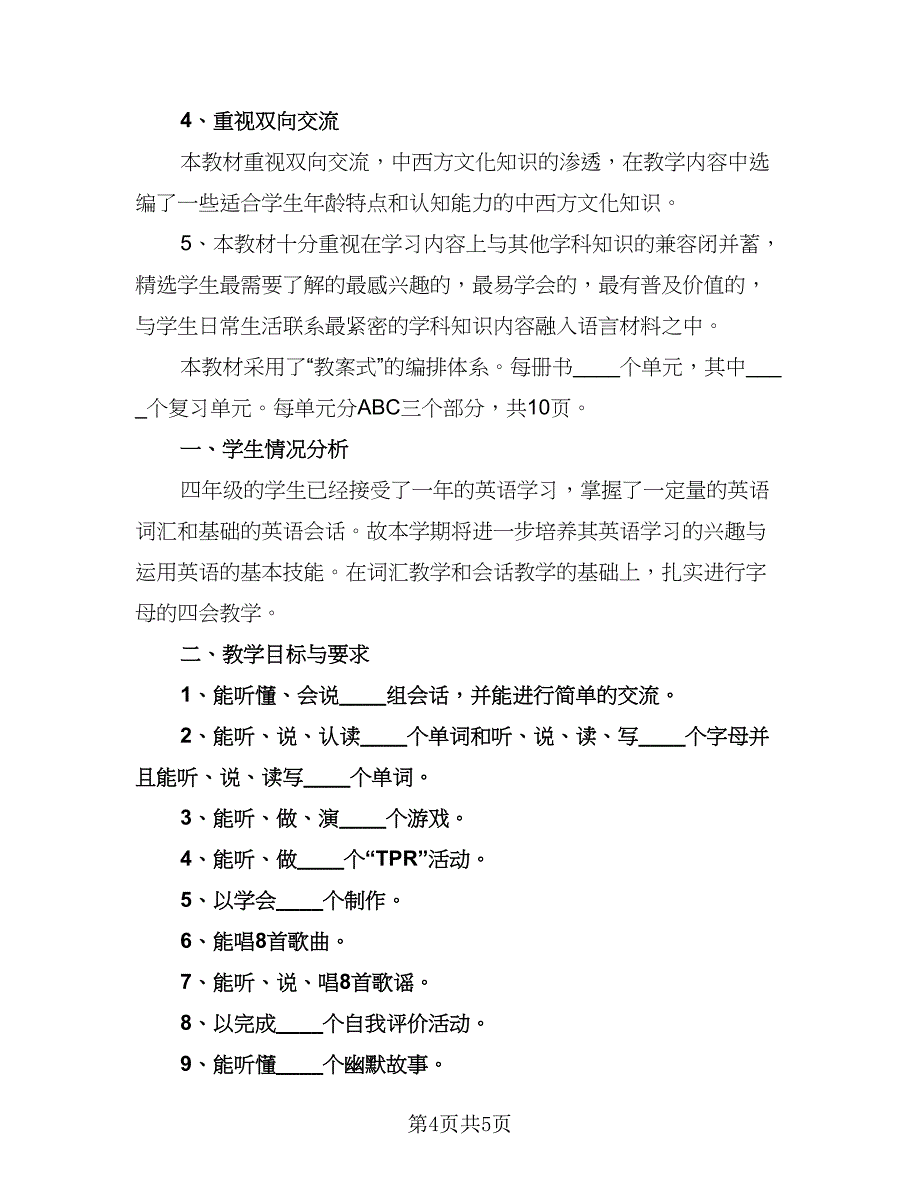 4、重视双向交流
本教材重视双向交流，中西方文化知识的渗透，在教学内容中选
编了一些适合学生年龄特点和认知能力的中西方文化知识。
5、本教材十分重视在学习内容上与其他学科知识的兼容闭并蓄，
精选学生最需要了解的最感兴趣的，最易学会的，最有普及价值的，
与学生日常生活联系最紧密的学科知识内容融入语言材料之中。
本教材采用了“教案式”的编排体系。每册书____个单元，其中___
_个复习单元。每单元分ABC三个部分，共10页。
一、学生情况分析
四年级的学生已经接受了一年的英语学习，掌握了一定量的英语
词汇和基础的英语会话。故本学期将进一步培养其英语学习的兴趣与
运用英语的基本技能。在词汇教学和会话教学的基础上，扎实进行字
母的四会教学。
二、教学目标与要求
1、能听懂、会说____组会话，并能进行简单的交流。
2、能听、说、认读____个单词和听、说、读、写____个字母并
且能听、说、读写____个单词。
3、能听、做、演____个游戏。
4、能听、做____个“TPR”活动。
5、以学会____个制作。
6、能唱8首歌曲。
7、能听、说、唱8首歌谣。
8、以完成____个自我评价活动。
9、能听懂____个幽默故事。
第4页共5页